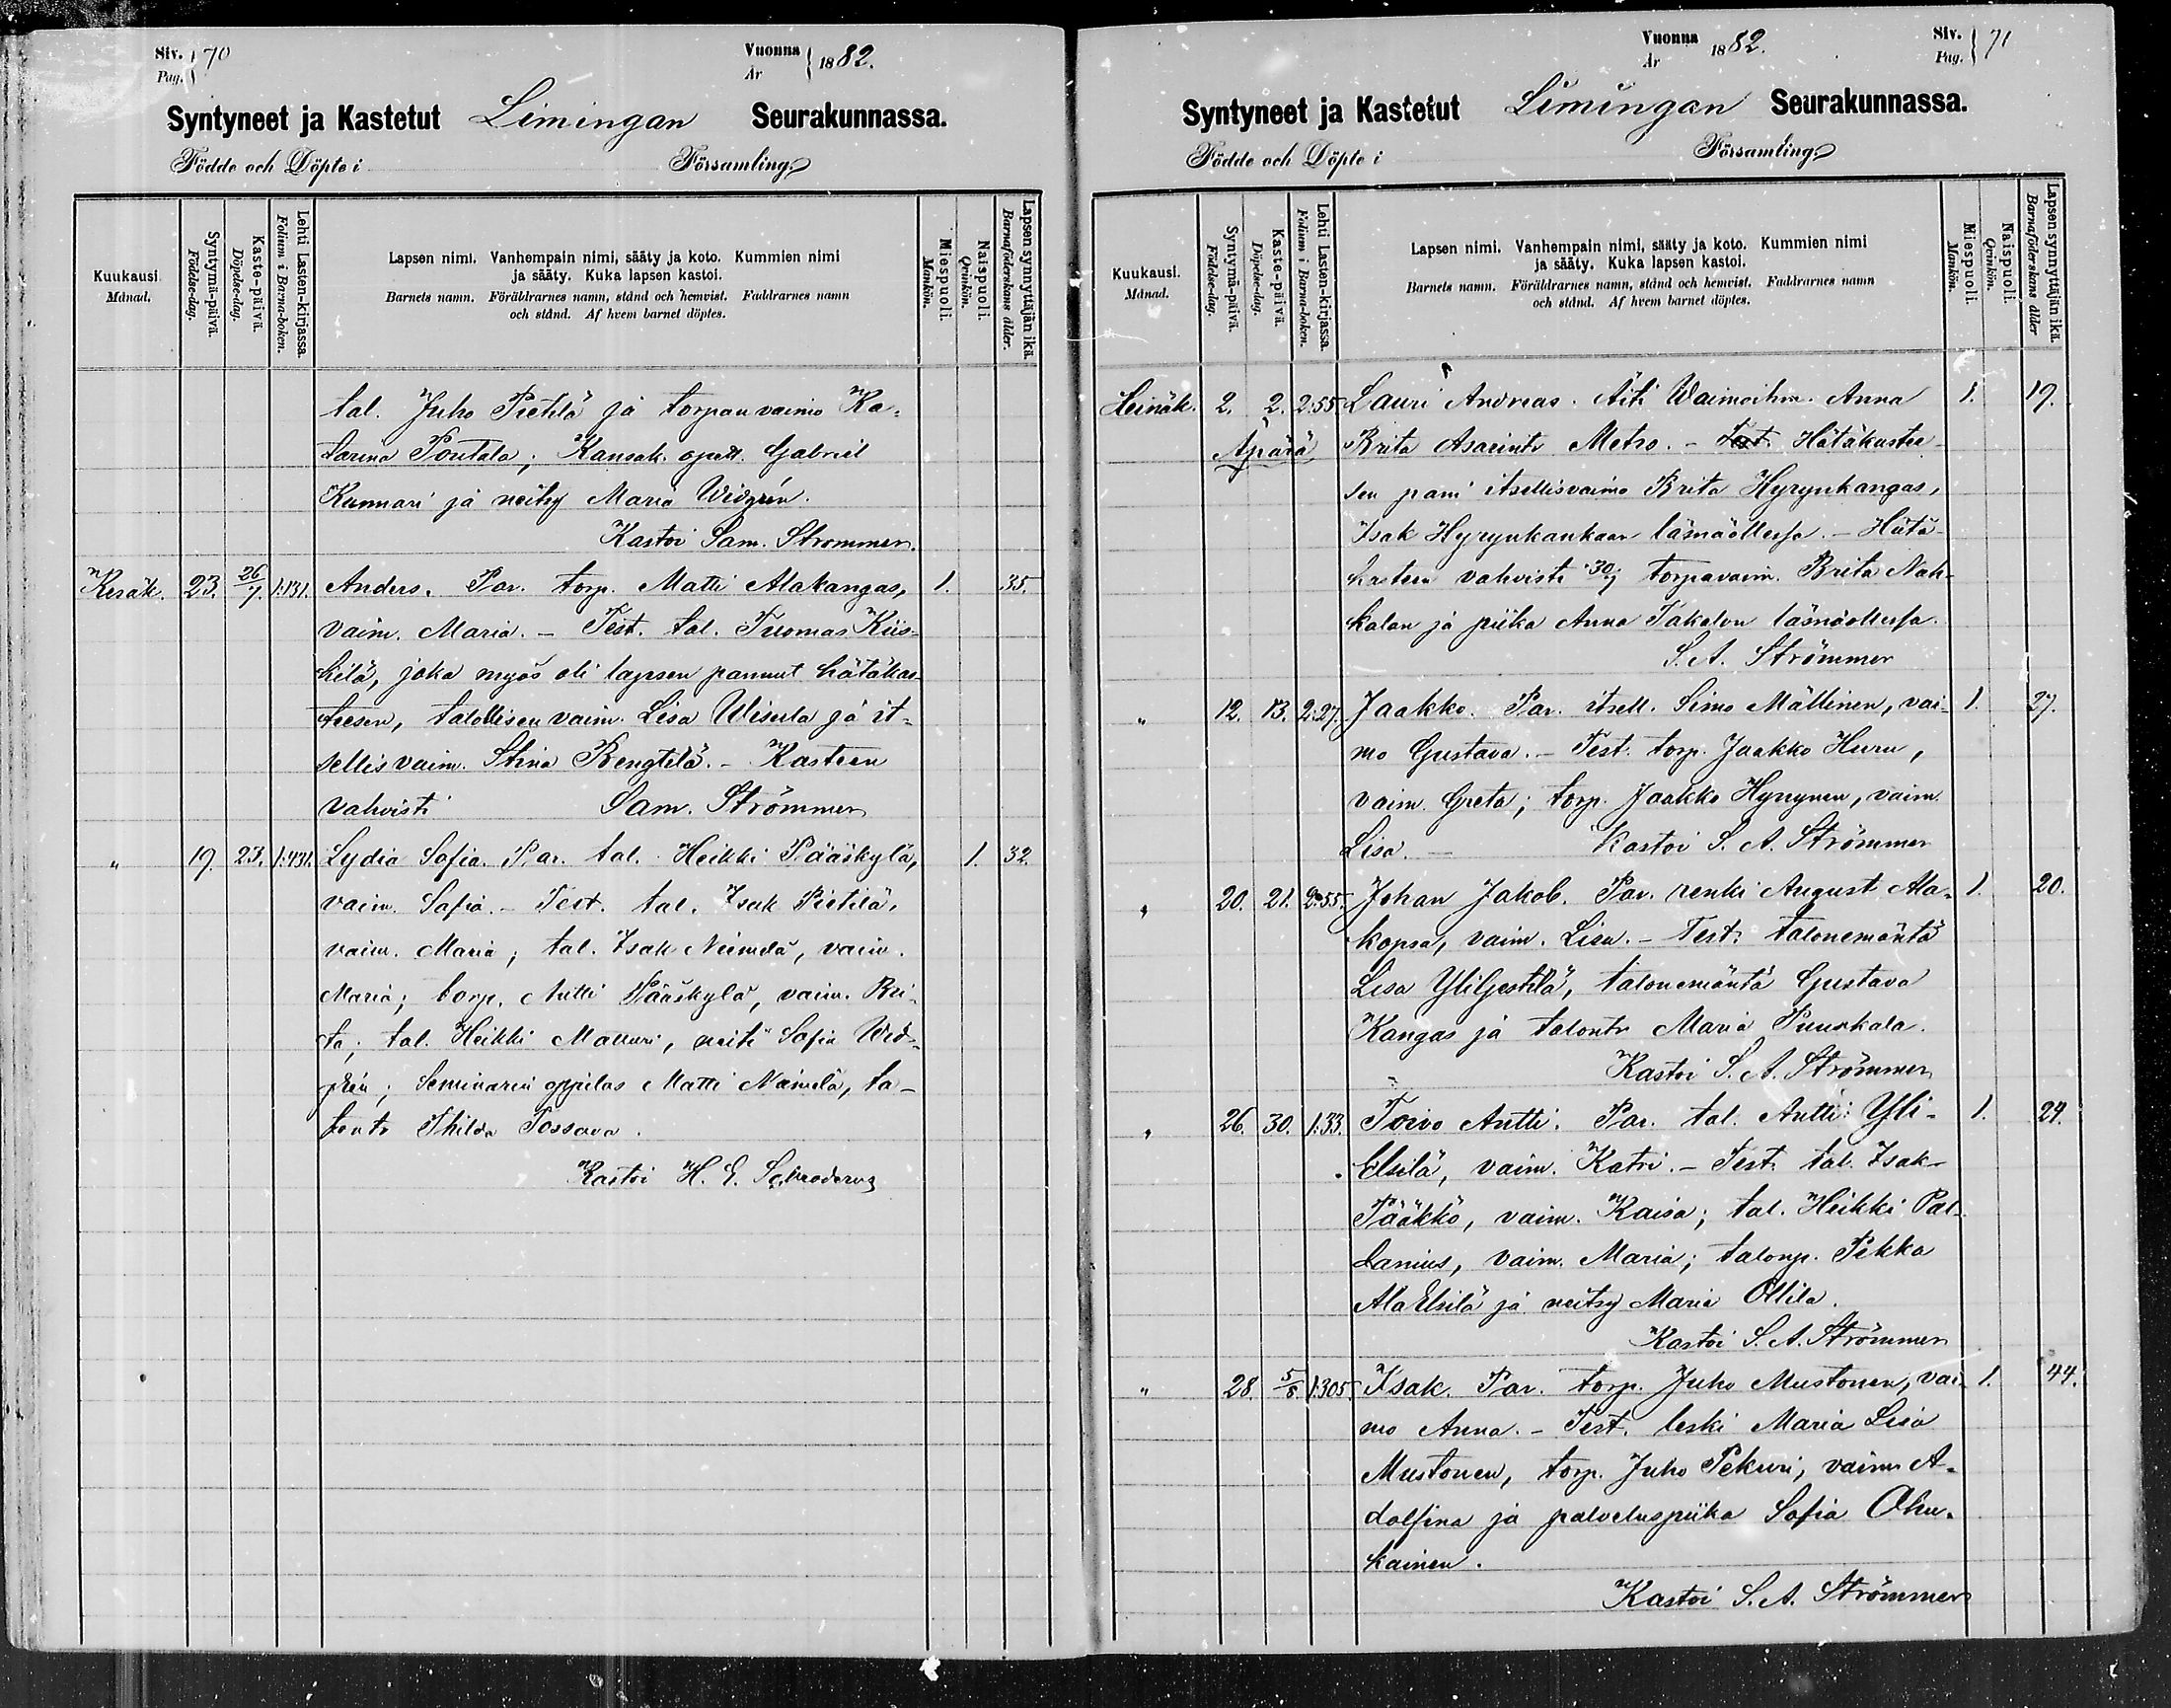 Siv. 70
Pag.
Vuonna 1882.
År
Syntyneet ja Kastetut Limingan Seurakunnassa.
Födde och Döpte i Församling
Kuukausi. Månad.
Syntymä-päivä. Födelse-dag.
Kaste-päivä. Döpelse-dag.
Lehti Lasten-kirjassa. Folium i Barna-boken.
Lapsen nimi. Vanhempain nimi, sääty ja koto. Kummien nimi
ja sääty. Kuka lapsen kastoi.
Barnets namn. Föräldrarnes namn, stånd och hemvist. Faddrarnes namn
och stånd. Af hvem barnet döptes.
Miespuoli. Mankön.
Naispuoli. Qvinkön.
Lapsen synnyttäjän ikä. Barnaföderskans ålder.
tal. Juho Pietilä ja torpan vaimo Ka-
tarina Poutala; Kansak. opett. Gabriel
Kunnari ja neitsy Maria Widgrén.
Kastoi Sam. Strömmer.
Kesäk. 23. 26/7. 1:131. Anders. Par. torp. Matti Alakangas, 1. 35.
vaim. Maria. - Test. tal. Tuomas Kiis-
kilä, joka myös oli lapsen pannut hätäkas-
teesen, talollisen vaim. Lisa Wisula ja it-
sellis vaim. Stina Bengtilä. - Kasteen
vahvisti Sam. Strömmer
" 19. 23. 1:431. Lydia Sofia. Par. tal. Heikki Pääskylä, 1. 32.
vaim. Sofia. - Test. tal. Isak Pietilä,
vaim. Maria; tal. Isak Niemelä, vaim.
Maria; torp. Antti Pääskylä, vaim. Bri-
ta; tal. Heikki Matturi, neiti Sofia Wid-
grén; Seminarin oppilas Matti Niemelä, ta-
lontr Thilda Tossava.
Kastoi H. E. Schroderus
Vuonna 1882.
År
Siv. 71
Pag.
Syntyneet ja Kastetut Limingan Seurakunnassa.
Födde och Döpte i Församling
Kuukausi. Månad.
Syntymä-päivä. Födelse-dag.
Kaste-päivä. Döpelse-dag.
Lehti Lasten-kirjassa. Folium i Barna-boken.
Lapsen nimi. Vanhempain nimi, sääty ja koto. Kummien nimi
ja sääty. Kuka lapsen kastoi.
Barnets namn. Föräldrarnes namn, stånd och hemvist. Faddrarnes namn
och stånd. Af hvem barnet döptes.
Miespuoli. Mankön.
Naispuoli. Qvinkön.
Lapsen synnyttäjän ikä. Barnaföderskans ålder
Heinäk. 2. 2. 2:55 Lauri Andreas. Äiti Waimoihm. Anna 1. 19.
Äpärä Brita Asarintr Metso. - Hätäkastee-
sen pani itsellisvaimo Brita Hyrynkangas,
Isak Hyrynkankaan läsnäollessa. - Hätä-
kasteen vahvisti 30/7 torpavaim. Brita Nah-
kalan ja piika Anna Takalon läsnäollessa.
S. A. Strömmer
" 12. 13. 2:27. Jaakko. Par. itsell. Simo Mällinen, vai- 1. 27.
mo Gustava. - Test. torp. Jaakko Huru,
vaim. Greta; torp. Jaakko Hyrynen, vaim.
Lisa. - Kastoi S. A. Strömmer
" 20. 21. 2:55. Johan Jakob. Par. renki August Ala- 1. 20.
kopsa, vaim. Lisa. - Test. talonemäntä
Lisa Yliljestilä, talonemäntä Gustava
Kangas ja talontr Maria Puuskala.
Kastoi S. A. Strömmer
" 26. 30. 1:33. Toivo Antti. Par. tal. Antti Yli- 1. 24.
Elsilä, vaim. Katri. - Test. tal. Isak
Pääkkö, vaim. Kaisa; tal. Heikki Pal-
danius, vaim. Maria; talonp. Pekka
Ala Elsilä ja neitsy Maria Ollila.
Kastoi S. A. Strömmer
" 28. 5/8. 1:305. Isak. Par. torp. Juho Mustonen, vai- 1. 44.
mo Anna. - Test. leski Maria Lisa
Mustonen, torp. Juho Pekuri, vaimo A-
dolfina ja palveluspiika Sofia Ohu-
kainen.
Kastoi S. A. Strömmer